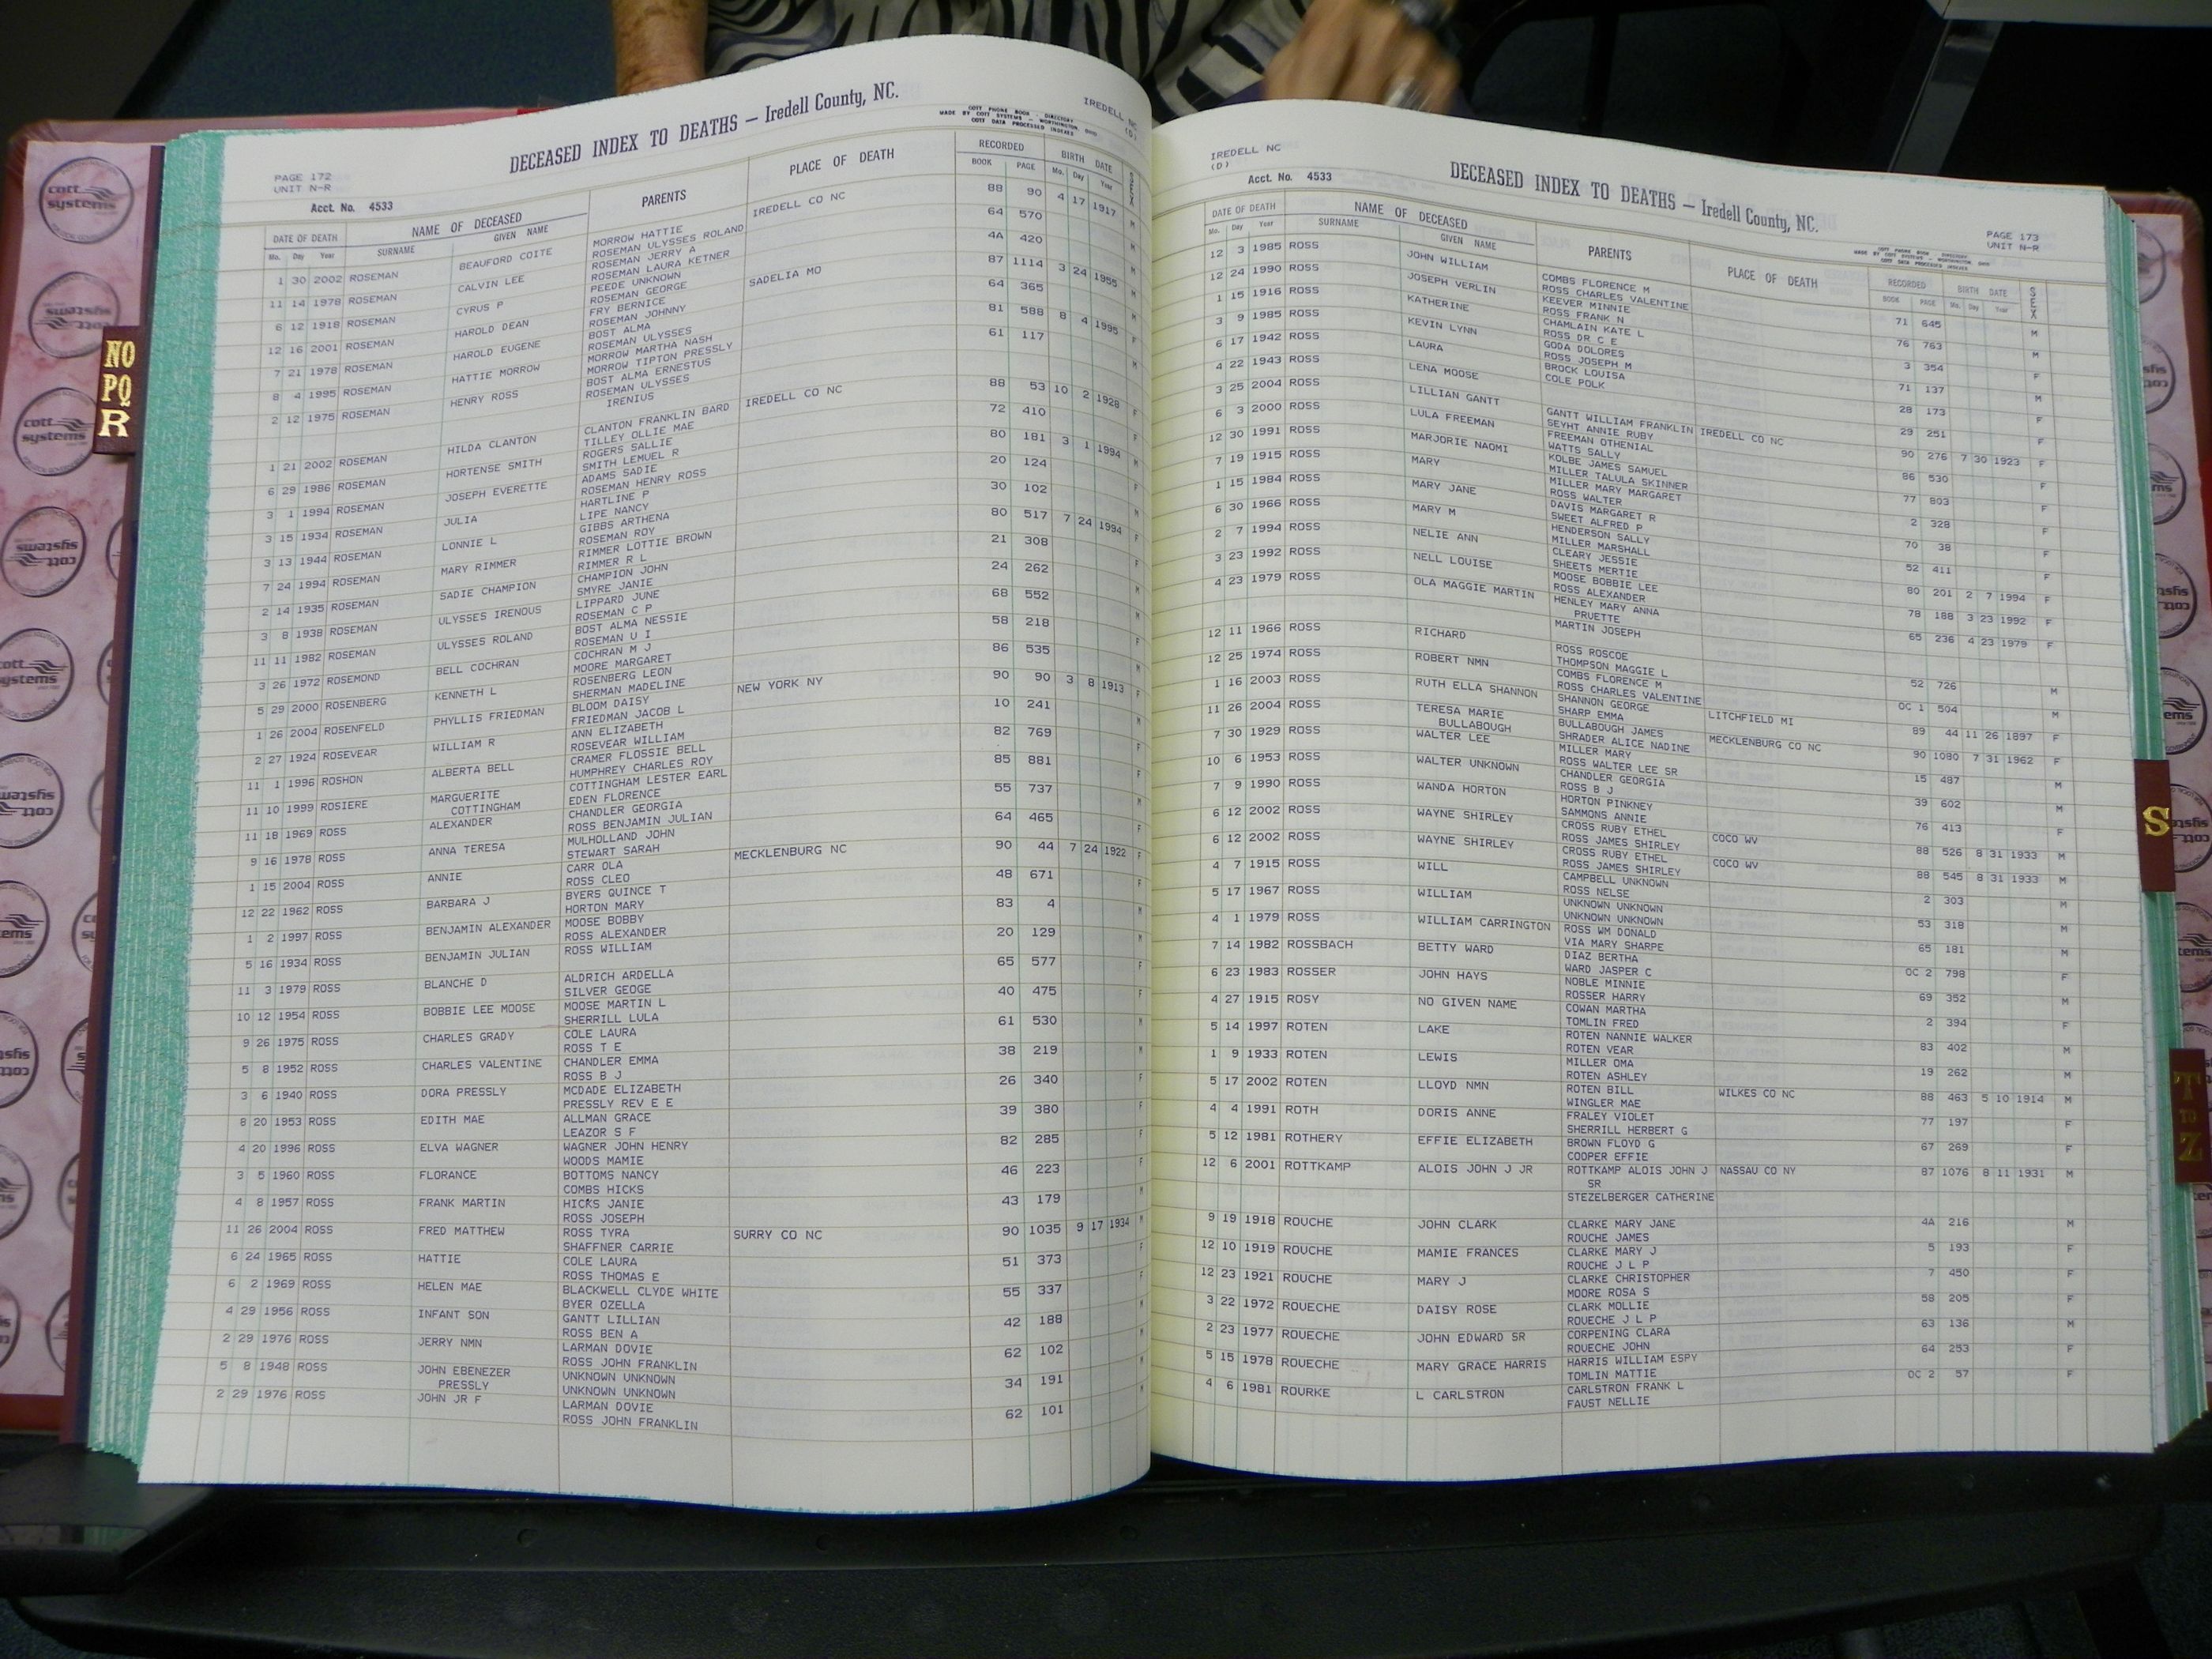 DECEASED INDEX TO DEATHS — Iredell County, NC.
PAGE 172
UNIT N-R
Acct. No. 4533
COTT PHONE BOOK - DIRECTORY
MADE BY COTT SYSTEMS - WORTHINGTON, OHIO
COTT DATA PROCESSED INDEXES
IREDELL NC
(D)
DATE OF DEATH NAME OF DECEASED PARENTS PLACE OF DEATH RECORDED BIRTH DATE SEX
Mo. Day Year SURNAME GIVEN NAME BOOK PAGE Mo. Day Year
1 30 2002 ROSEMAN BEAUFORD COITE MORROW HATTIE IREDELL CO NC 88 90 4 17 1917 M
ROSEMAN ULYSSES ROLAND
11 14 1978 ROSEMAN CALVIN LEE ROSEMAN JERRY A 64 570 M
ROSEMAN LAURA KETNER
6 12 1918 ROSEMAN CYRUS P PEEDE UNKNOWN 4A 420 M
ROSEMAN GEORGE
12 16 2001 ROSEMAN HAROLD DEAN FRY BERNICE SADELIA MO 87 1114 3 24 1955 M
ROSEMAN JOHNNY
7 21 1978 ROSEMAN HAROLD EUGENE BOST ALMA 64 365 M
ROSEMAN ULYSSES
8 4 1995 ROSEMAN HATTIE MORROW MORROW MARTHA NASH 81 588 8 4 1995 F
MORROW TIPTON PRESSLY
2 12 1975 ROSEMAN HENRY ROSS BOST ALMA ERNESTUS 61 117 M
ROSEMAN ULYSSES
IRENIUS
1 21 2002 ROSEMAN HILDA CLANTON CLANTON FRANKLIN BARD IREDELL CO NC 88 53 10 2 1928 F
TILLEY OLLIE MAE
6 29 1986 ROSEMAN HORTENSE SMITH ROGERS SALLIE 72 410 F
SMITH LEMUEL R
3 1 1994 ROSEMAN JOSEPH EVERETTE ADAMS SADIE 80 181 3 1 1994 M
ROSEMAN HENRY ROSS
3 15 1934 ROSEMAN JULIA HARTLINE P 20 124 F
LIPE NANCY
3 13 1944 ROSEMAN LONNIE L GIBBS ARTHENA 30 102 M
ROSEMAN ROY
7 24 1994 ROSEMAN MARY RIMMER RIMMER LOTTIE BROWN 80 517 7 24 1994 F
RIMMER R L
2 14 1935 ROSEMAN SADIE CHAMPION CHAMPION JOHN 21 308 F
SMYRE JANIE
3 8 1938 ROSEMAN ULYSSES IRENOUS LIPPARD JUNE 24 262 M
ROSEMAN C P
11 11 1982 ROSEMAN ULYSSES ROLAND BOST ALMA NESSIE 68 552 M
ROSEMAN U I
3 26 1972 ROSEMOND BELL COCHRAN COCHRAN M J 58 218 F
MOORE MARGARET
5 29 2000 ROSENBERG KENNETH L ROSENBERG LEON 86 535 M
SHERMAN MADELINE
1 26 2004 ROSENFELD PHYLLIS FRIEDMAN BLOOM DAISY NEW YORK NY 90 90 3 8 1913 F
FRIEDMAN JACOB L
2 27 1924 ROSEVEAR WILLIAM R ANN ELIZABETH 10 241 M
ROSEVEAR WILLIAM
11 1 1996 ROSHON ALBERTA BELL CRAMER FLOSSIE BELL 82 769 F
HUMPHREY CHARLES ROY
11 10 1999 ROSIERE MARGUERITE COTTINGHAM LESTER EARL 85 881 F
COTTINGHAM EDEN FLORENCE
11 18 1969 ROSS ALEXANDER CHANDLER GEORGIA 55 737 M
ROSS BENJAMIN JULIAN
9 16 1978 ROSS ANNA TERESA MULHOLLAND JOHN 64 465 F
STEWART SARAH
1 15 2004 ROSS ANNIE CARR OLA MECKLENBURG NC 90 44 7 24 1922 F
ROSS CLEO
12 22 1962 ROSS BARBARA J BYERS QUINCE T 48 671 F
HORTON MARY
1 2 1997 ROSS BENJAMIN ALEXANDER MOOSE BOBBY 83 4 M
ROSS ALEXANDER
5 16 1934 ROSS BENJAMIN JULIAN ROSS WILLIAM 20 129 M
11 3 1979 ROSS BLANCHE D ALDRICH ARDELLA 65 577 F
SILVER GEOGE
10 12 1954 ROSS BOBBIE LEE MOOSE MOOSE MARTIN L 40 475 F
SHERRILL LULA
9 26 1975 ROSS CHARLES GRADY COLE LAURA 61 530 M
ROSS T E
5 8 1952 ROSS CHARLES VALENTINE CHANDLER EMMA 38 219 M
ROSS B J
3 6 1940 ROSS DORA PRESSLY MCDADE ELIZABETH 26 340 F
PRESSLY REV E E
8 20 1953 ROSS EDITH MAE ALLMAN GRACE 39 380 F
LEAZOR S F
4 20 1996 ROSS ELVA WAGNER WAGNER JOHN HENRY 82 285 F
WOODS MAMIE
3 5 1960 ROSS FLORANCE BOTTOMS NANCY 46 223 F
COMBS HICKS
4 8 1957 ROSS FRANK MARTIN HICKS JANIE 43 179 M
ROSS JOSEPH
11 26 2004 ROSS FRED MATTHEW ROSS TYRA SURRY CO NC 90 1035 9 17 1934 M
SHAFFNER CARRIE
6 24 1965 ROSS HATTIE COLE LAURA 51 373 F
ROSS THOMAS E
6 2 1969 ROSS HELEN MAE BLACKWELL CLYDE WHITE 55 337 F
BYER OZELLA
4 29 1956 ROSS INFANT SON GANTT LILLIAN 42 188 M
ROSS BEN A
2 29 1976 ROSS JERRY NMN LARMAN DOVIE 62 102 M
ROSS JOHN FRANKLIN
5 8 1948 ROSS JOHN EBENEZER UNKNOWN UNKNOWN 34 191 M
PRESSLY UNKNOWN UNKNOWN
2 29 1976 ROSS JOHN JR F LARMAN DOVIE 62 101
ROSS JOHN FRANKLIN
IREDELL NC
(D)
Acct. No. 4533
DECEASED INDEX TO DEATHS — Iredell County, NC.
PAGE 173
UNIT N-R
DATE OF DEATH NAME OF DECEASED PARENTS PLACE OF DEATH RECORDED BIRTH DATE SEX
Mo. Day Year SURNAME GIVEN NAME BOOK PAGE Mo. Day Year
12 3 1985 ROSS JOHN WILLIAM COMBS FLORENCE M 71 645 M
ROSS CHARLES VALENTINE
12 24 1990 ROSS JOSEPH VERLIN KEEVER MINNIE 76 763 M
ROSS FRANK N
1 15 1916 ROSS KATHERINE CHAMLAIN KATE L 3 354 F
ROSS DR C E
3 9 1985 ROSS KEVIN LYNN GODA DOLORES 71 137 M
ROSS JOSEPH M
6 17 1942 ROSS LAURA BROCK LOUISA 28 173 F
COLE POLK
4 22 1943 ROSS LENA MOOSE 29 251 F
3 25 2004 ROSS LILLIAN GANTT GANTT WILLIAM FRANKLIN IREDELL CO NC 90 276 7 30 1923 F
SEYHT ANNIE RUBY
6 3 2000 ROSS LULA FREEMAN FREEMAN OTHENIAL 86 530 F
WATTS SALLY
12 30 1991 ROSS MARJORIE NAOMI KOLBE JAMES SAMUEL 77 803 F
MILLER TALULA SKINNER
7 19 1915 ROSS MARY MILLER MARY MARGARET 2 328 F
ROSS WALTER
1 15 1984 ROSS MARY JANE DAVIS MARGARET R 70 38 F
SWEET ALFRED P
6 30 1966 ROSS MARY M HENDERSON SALLY 52 411 F
MILLER MARSHALL
2 7 1994 ROSS NELIE ANN CLEARY JESSIE 80 201 2 7 1994 F
SHEETS MERTIE
3 23 1992 ROSS NELL LOUISE MOOSE BOBBIE LEE 78 188 3 23 1992 F
ROSS ALEXANDER
4 23 1979 ROSS OLA MAGGIE MARTIN HENLEY MARY ANNA 65 236 4 23 1979 F
PRUETTE
MARTIN JOSEPH
12 11 1966 ROSS RICHARD ROSS ROSCOE 52 726 M
THOMPSON MAGGIE L
12 25 1974 ROSS ROBERT NMN COMBS FLORENCE M OC 1 504 M
ROSS CHARLES VALENTINE
1 16 2003 ROSS RUTH ELLA SHANNON SHANNON GEORGE LITCHFIELD MI 89 44 11 26 1897 F
SHARP EMMA
11 26 2004 ROSS TERESA MARIE BULLABOUGH JAMES MECKLENBURG CO NC 90 1080 7 31 1962 F
BULLABOUGH SHRADER ALICE NADINE
7 30 1929 ROSS WALTER LEE MILLER MARY 15 487 M
ROSS WALTER LEE SR
10 6 1953 ROSS WALTER UNKNOWN CHANDLER GEORGIA 39 602 M
ROSS B J
7 9 1990 ROSS WANDA HORTON HORTON PINKNEY 76 413 F
SAMMONS ANNIE
6 12 2002 ROSS WAYNE SHIRLEY CROSS RUBY ETHEL COCO WV 88 526 8 31 1933 M
ROSS JAMES SHIRLEY
6 12 2002 ROSS WAYNE SHIRLEY CROSS RUBY ETHEL COCO WV 88 545 8 31 1933 M
ROSS JAMES SHIRLEY
4 7 1915 ROSS WILL CAMPBELL UNKNOWN 2 303 M
ROSS NELSE
5 17 1967 ROSS WILLIAM UNKNOWN UNKNOWN 53 318 M
UNKNOWN UNKNOWN
4 1 1979 ROSS WILLIAM CARRINGTON ROSS WM DONALD 65 181 M
VIA MARY SHARPE
7 14 1982 ROSSBACH BETTY WARD DIAZ BERTHA OC 2 798 F
WARD JASPER C
6 23 1983 ROSSER JOHN HAYS NOBLE MINNIE 69 352 M
ROSSER HARRY
4 27 1915 ROSY NO GIVEN NAME COWAN MARTHA 2 394 F
TOMLIN FRED
5 14 1997 ROTEN LAKE ROTEN NANNIE WALKER 83 402 M
ROTEN VEAR
1 9 1933 ROTEN LEWIS MILLER OMA 19 262 M
ROTEN ASHLEY
5 17 2002 ROTEN LLOYD NMN ROTEN BILL WILKES CO NC 88 463 5 10 1914 M
WINGLER MAE
4 4 1991 ROTH DORIS ANNE FRALEY VIOLET 77 197 F
SHERRILL HERBERT G
5 12 1981 ROTHERY EFFIE ELIZABETH BROWN FLOYD G 67 269 F
COOPER EFFIE
12 6 2001 ROTTKAMP ALOIS JOHN J JR ROTTKAMP ALOIS JOHN J NASSAU CO NY 87 1076 8 11 1931 M
SR
STEZELBERGER CATHERINE
9 19 1918 ROUCHE JOHN CLARK CLARKE MARY JANE 4A 216 M
ROUCHE JAMES
12 10 1919 ROUCHE MAMIE FRANCES CLARKE MARY J 5 193 F
ROUCHE J L P
12 23 1921 ROUCHE MARY J CLARKE CHRISTOPHER 7 450 F
MOORE ROSA S
3 22 1972 ROUECHE DAISY ROSE CLARK MOLLIE 58 205 F
ROUECHE J L P
2 23 1977 ROUECHE JOHN EDWARD SR CORPENING CLARA 63 136 M
ROUECHE JOHN
5 15 1978 ROUECHE MARY GRACE HARRIS HARRIS WILLIAM ESPY 64 253 F
TOMLIN MATTIE
4 6 1981 ROURKE L CARLSTRON CARLSTRON FRANK L OC 2 57 F
FAUST NELLIE
NO
PQ
R
S
T
TO
Z
cott
systems